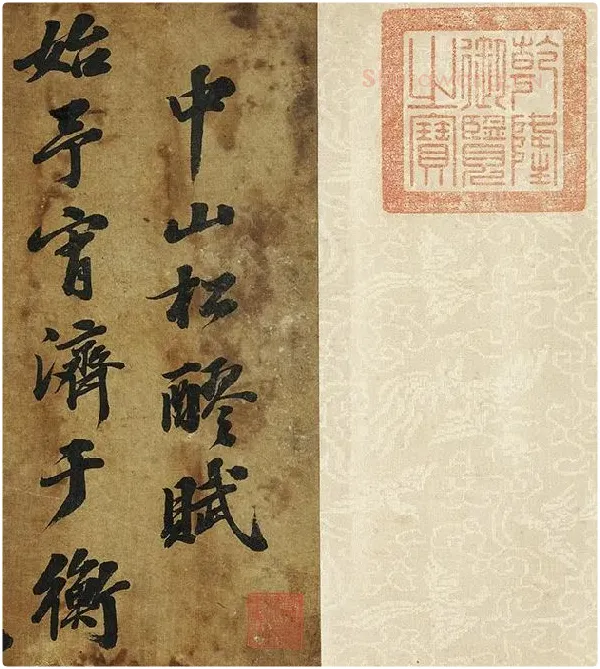 乾隆
御覽
之寶
中山松醪賦
始予宵濟于衡